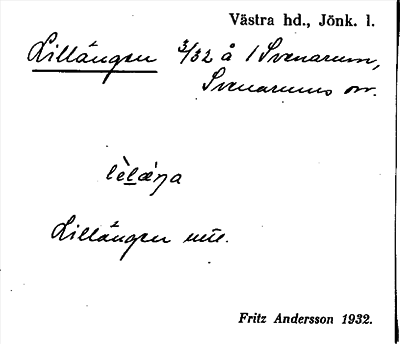 Västra hd., Jönk. l.
Lillängen 3/32 å 1 Svenarum,
Svenarums sn.
lèlæ´ŋa
Lillängen
Fritz Andersson 1932.